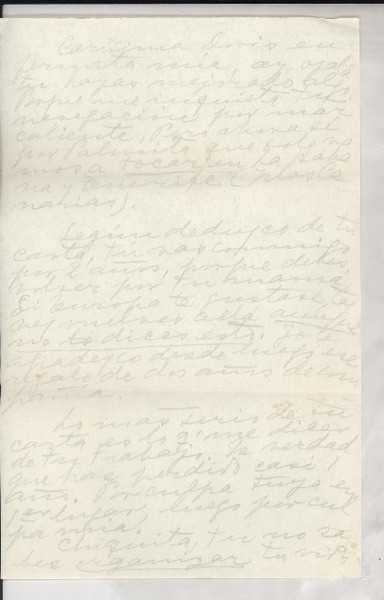 Carísima Doris en
fermita mía, ay ojalá
tú hayas mejorado algo
Porque me inquieta tu
navegación por mar
caliente. Pero ahora sí
por Palmita que sole va
mos a tocar en La Haba
na y Tenerife (Islas Ca
narias).
Según deduzco de tu
carta, tú vas conmigo
por 2 años, porque debes
volver por tu mamá.
Si Europa te gustase, ta
no lo dices esto. Yo te
agradezco desde luego ese
regalo de dos años de com
pañía.
Lo más serio de tu
carta es lo q' me dices
de tu trabajo. Es verdad
que has perdido casi 1
año. Por culpa tuya en
1er lugar, luego por cul
pa mía.
Chiquita, tu no sa
bes organizar tu vida,